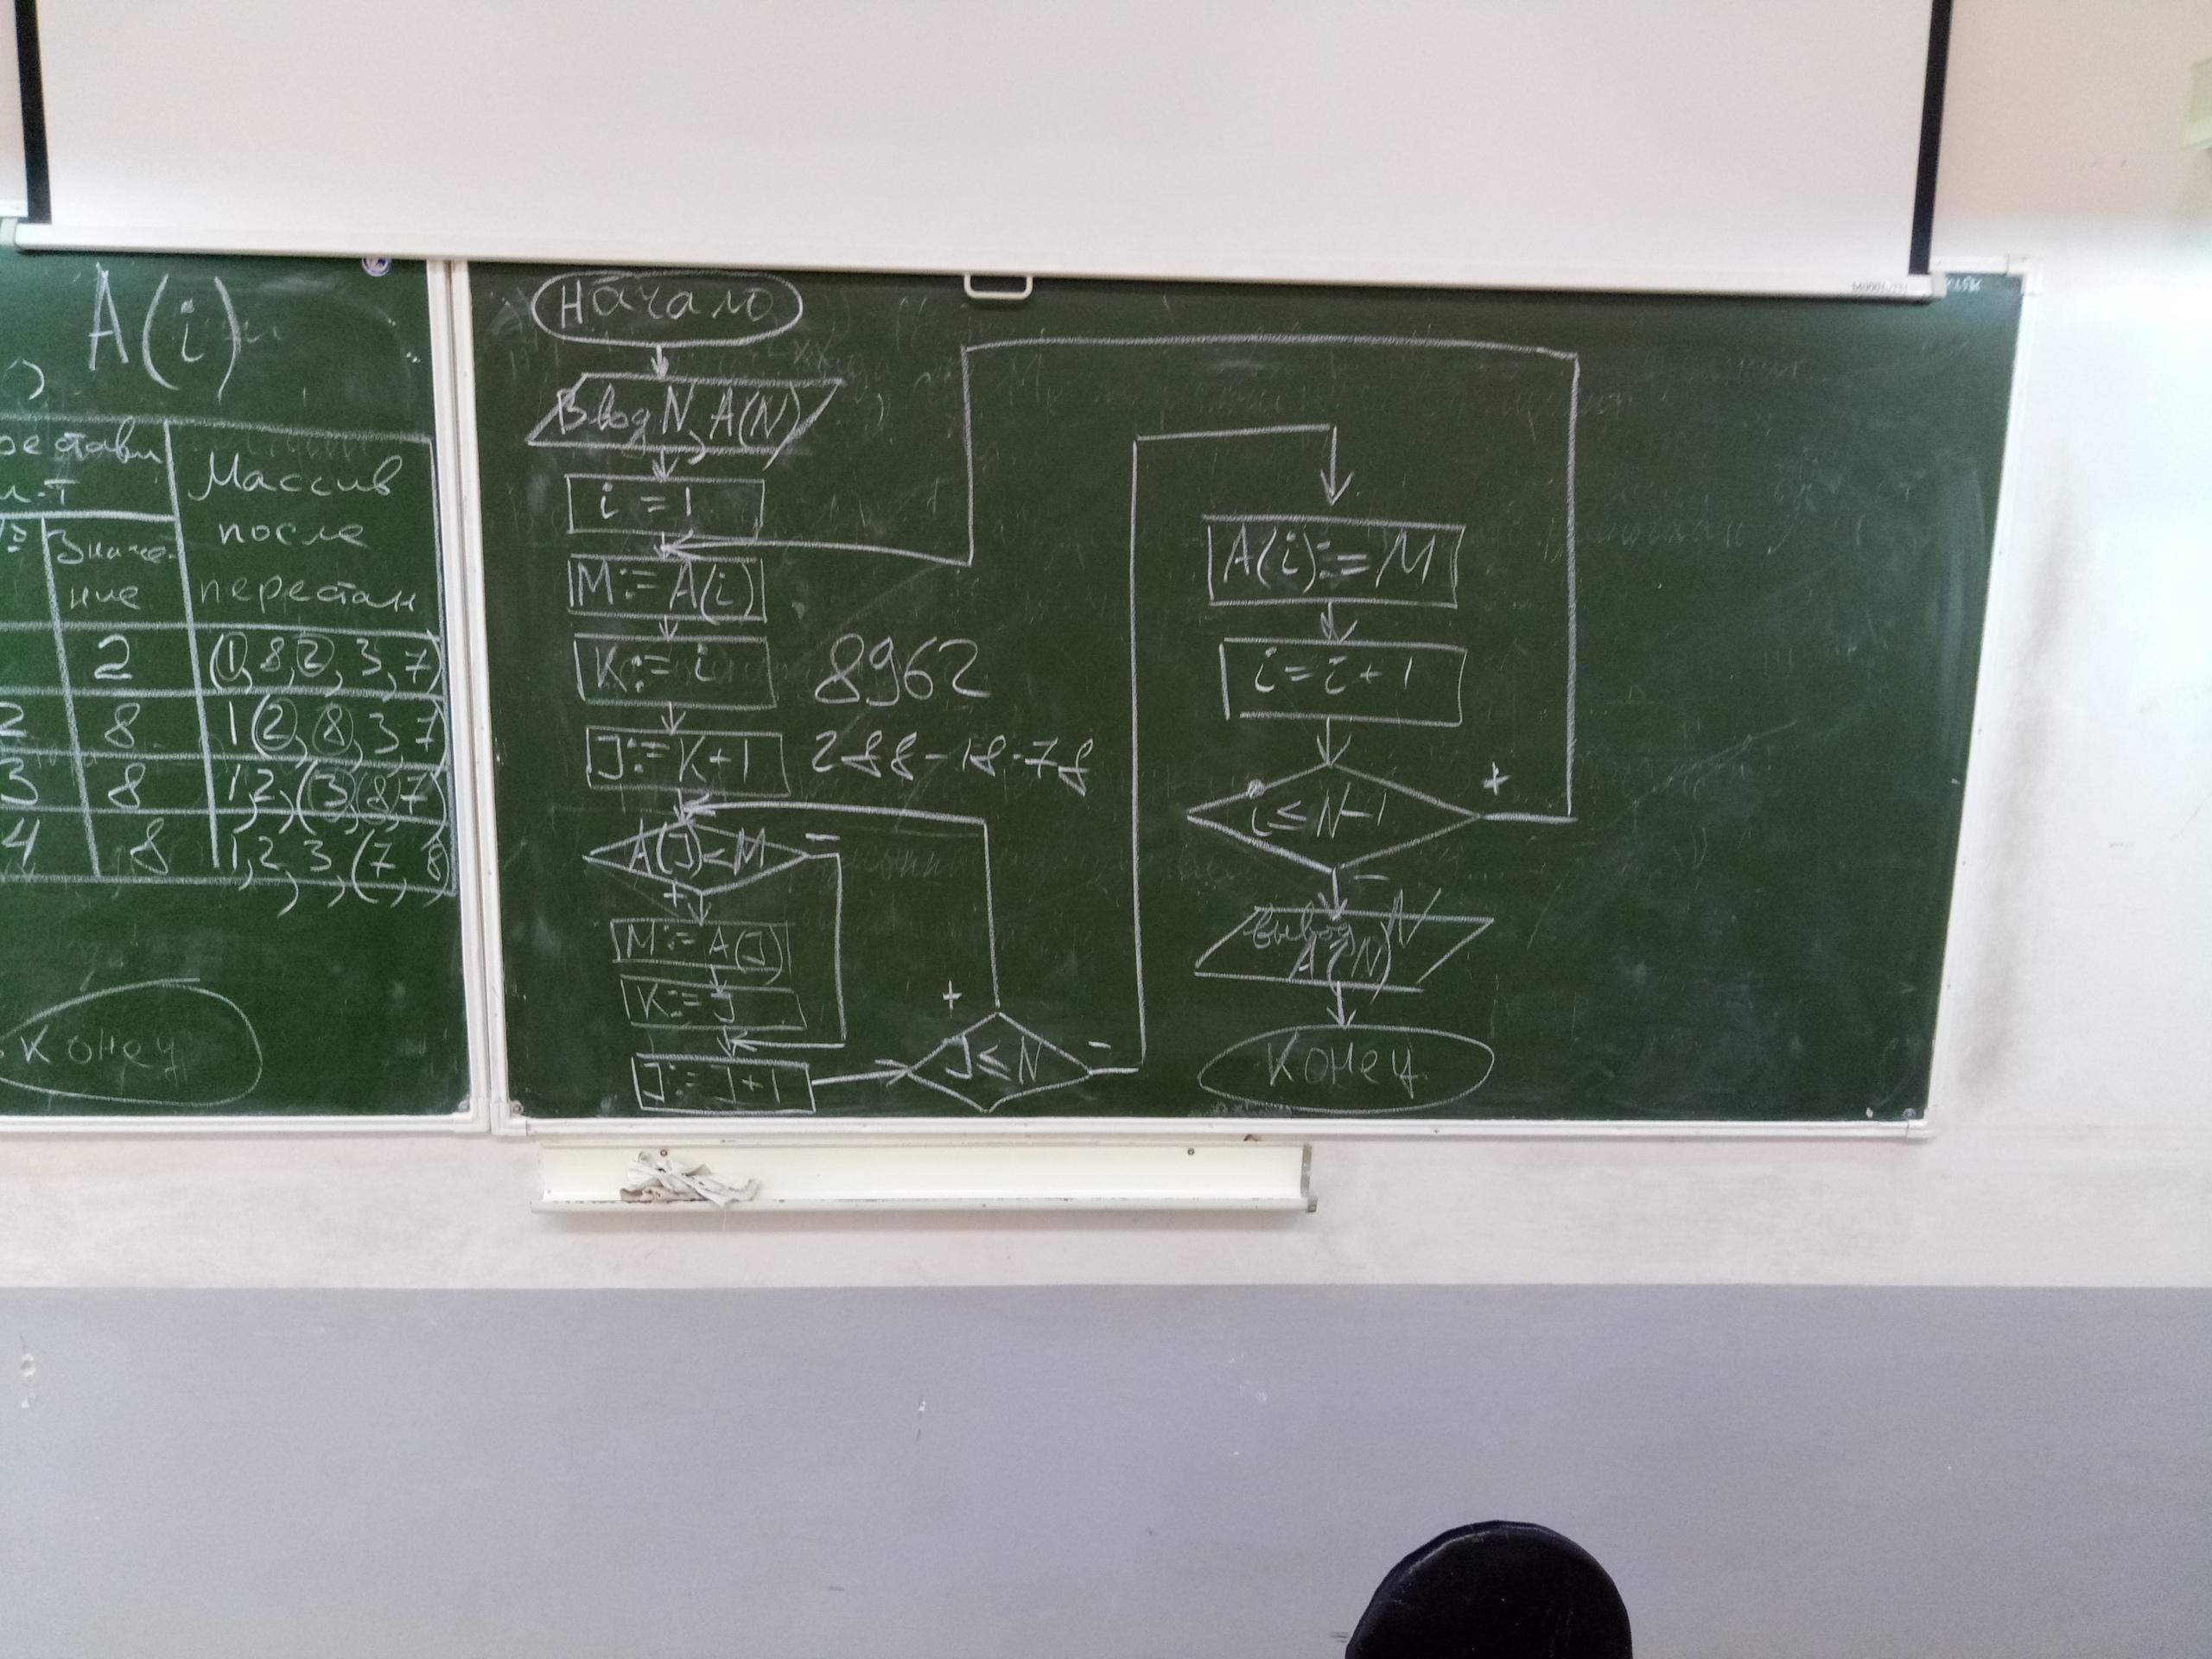 A(i)
Массив
после
перестан
Значе-
ние
2
(1, 8, 2, 3, 7)
2
8
1(2, 8, 3, 7)
3
8
1, 2, (3, 8, 7)
4
8
1, 2, 3, (7, 8)
Конец
Начало
Ввод N, A(N)
i = 1
M := A(i)
K := i
J := K+1
A(J)<M
-
+
M := A(J)
K := J
J := J+1
8962
288-18-78
+
J≤N
-
A(i) := M
i = i + 1
i ≤ N-1
+
-
вывод N
A(N)
Конец